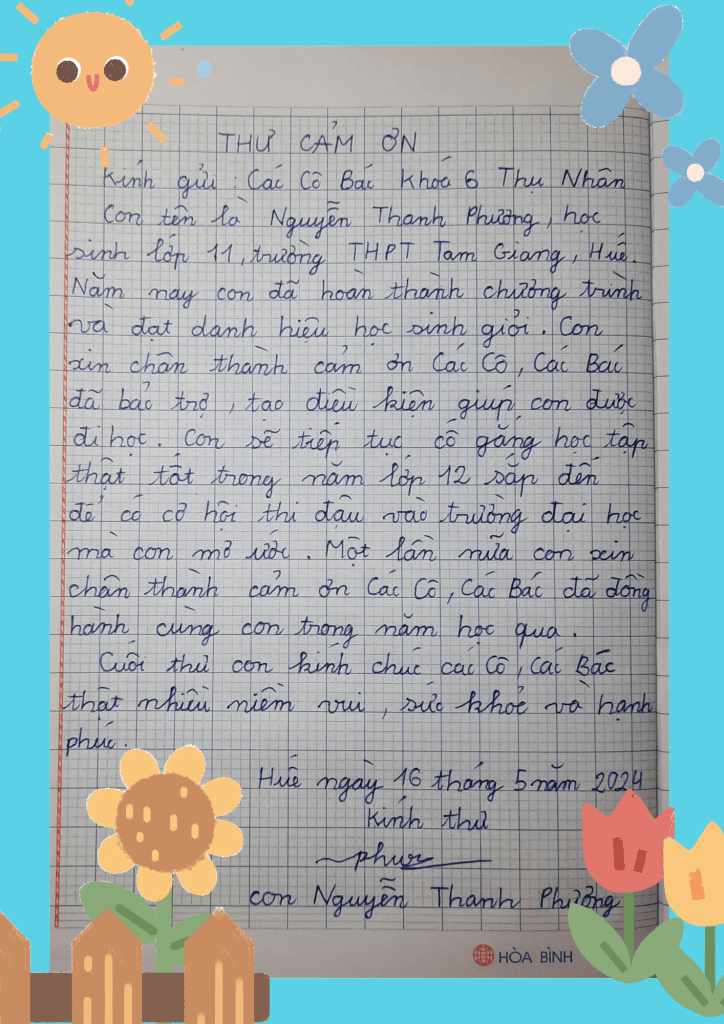 THƯ CẢM ƠN
Kính gửi : Các Cô Bác Khoá 6 Thụ Nhân
Con tên là Nguyễn Thanh Phương, học
sinh lớp 11, trường THPT Tam Giang, Huế.
Năm nay con đã hoàn thành chương trình
và đạt danh hiệu học sinh giỏi. Con
xin chân thành cảm ơn Các Cô, Các Bác
đã bảo trợ, tạo điều kiện giúp con được
đi học. Con sẽ tiếp tục cố gắng học tập
thật tốt trong năm lớp 12 sắp đến
để có cơ hội thi đậu vào trường đại học
mà con mơ ước. Một lần nữa con xin
chân thành cảm ơn Các Cô, Các Bác đã đồng
hành cùng con trong năm học qua.
Cuối thư con kính chúc các Cô, Các Bác
thật nhiều niềm vui, sức khoẻ và hạnh
phúc.
Huế ngày 16 tháng 5 năm 2024
Kính thư
phươ
con Nguyễn Thanh Phương
HÒA BÌNH